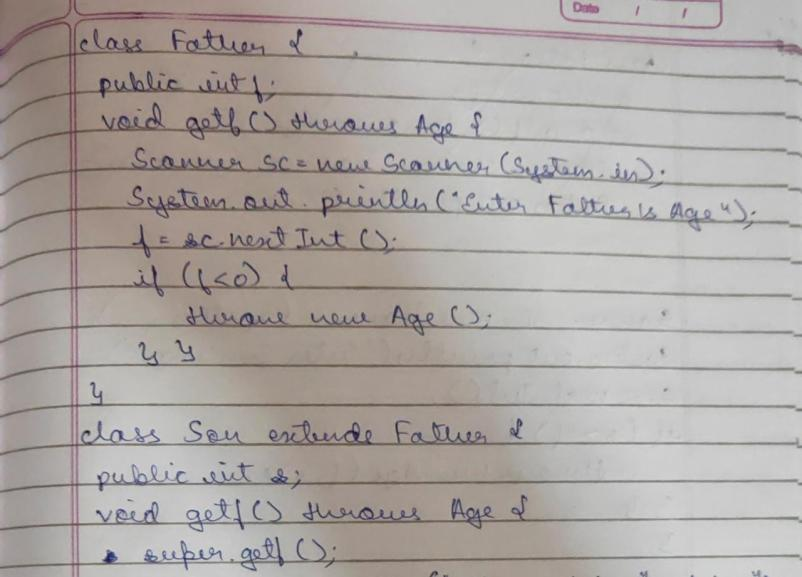 Date / /
class Father {
public int f;
void getf () throws Age {
Scanner sc = new Scanner (System.in);
System.out.println ("Enter Father's Age");
f = sc.nextInt ();
if (f<0) {
throw new Age ();
} }
}
class Son extends Father {
public int s;
void getf () throws Age {
super.getf ();